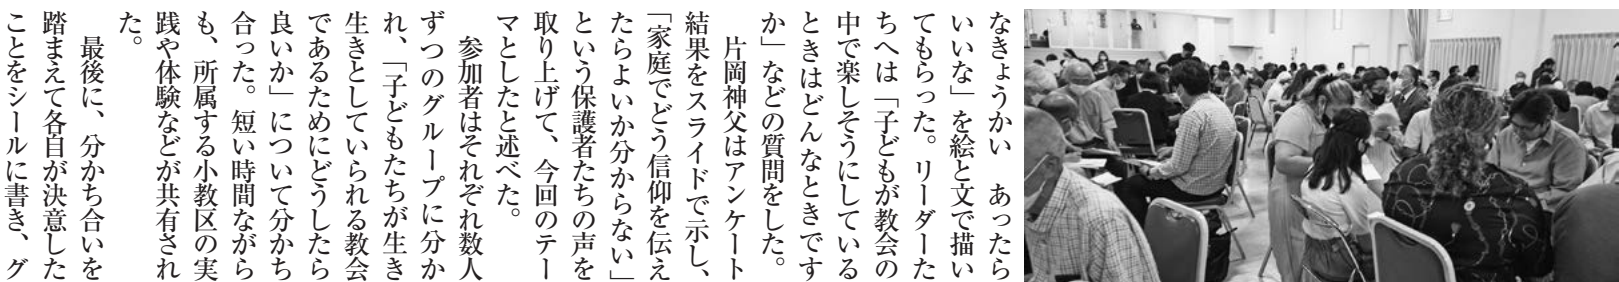 なきょうかい　あったら
いいな」を絵と文で描い
てもらった。リーダーた
ちへは「子どもが教会の
中で楽しそうにしている
ときはどんなときです
か」などの質問をした。
　片岡神父はアンケート
結果をスライドで示し、
「家庭でどう信仰を伝え
たらよいか分からない」
という保護者たちの声を
取り上げて、今回のテー
マとしたと述べた。
　参加者はそれぞれ数人
ずつのグループに分か
れ、「子どもたちが生き
生きとしていられる教会
であるためにどうしたら
良いか」について分かち
合った。短い時間ながら
も、所属する小教区の実
践や体験などが共有され
た。
　最後に、分かち合いを
踏まえて各自が決意した
ことをシールに書き、グ